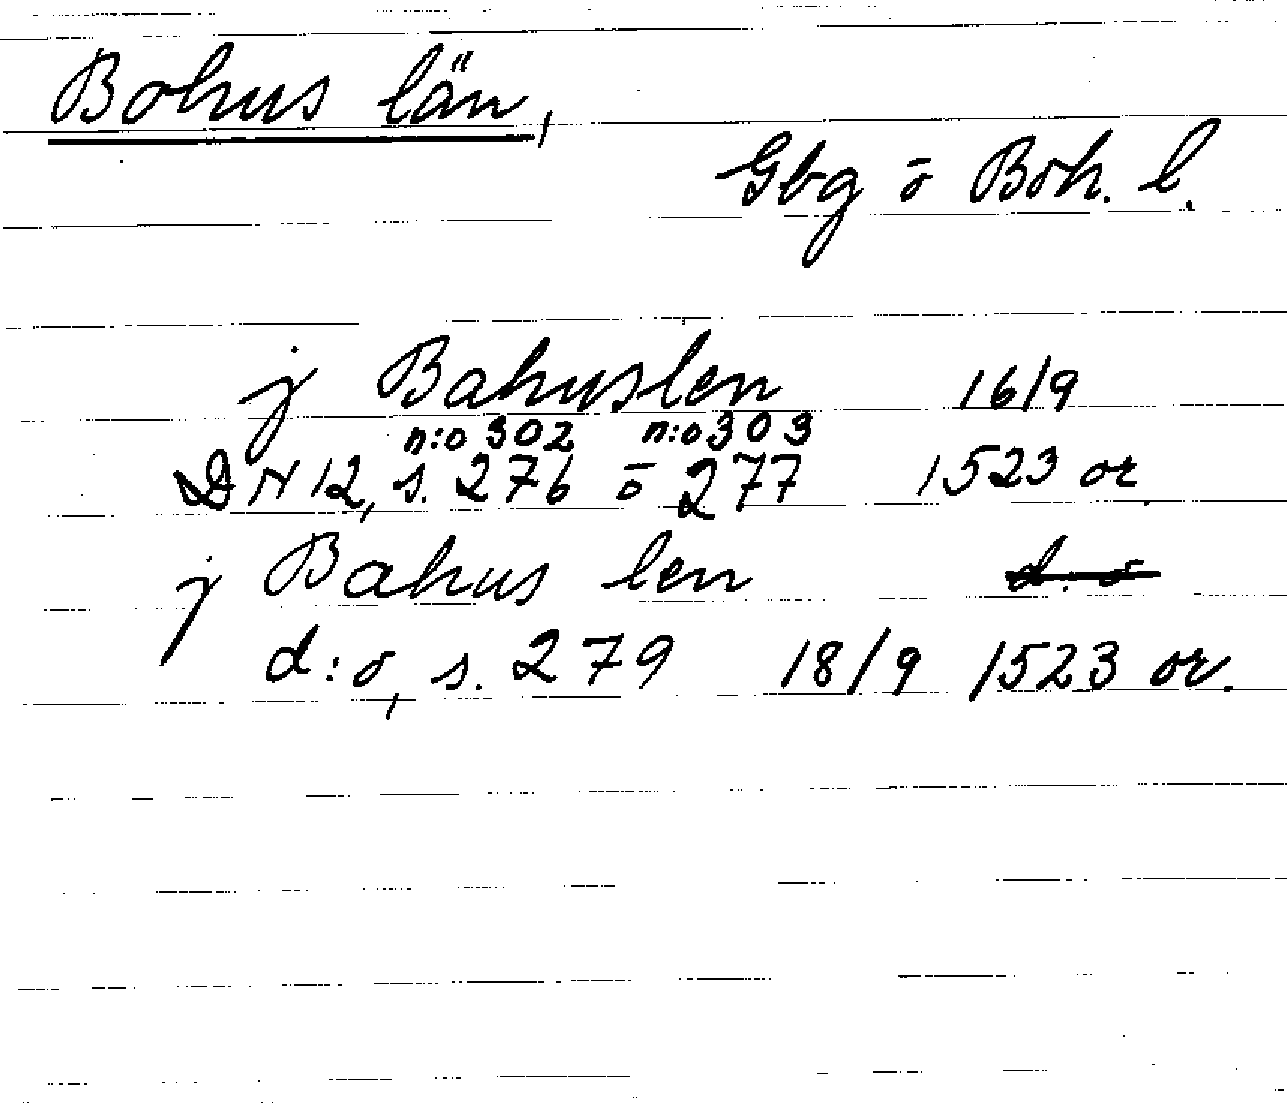 Bohus län,
Gbg ō Boh. l.
j Bahuslen 16/9
n:o 302 n:o 303
DN 12, s. 276 ō 277 1523 or.
j Bahus len d. o
d:o, s. 279 18/9 1523 or.